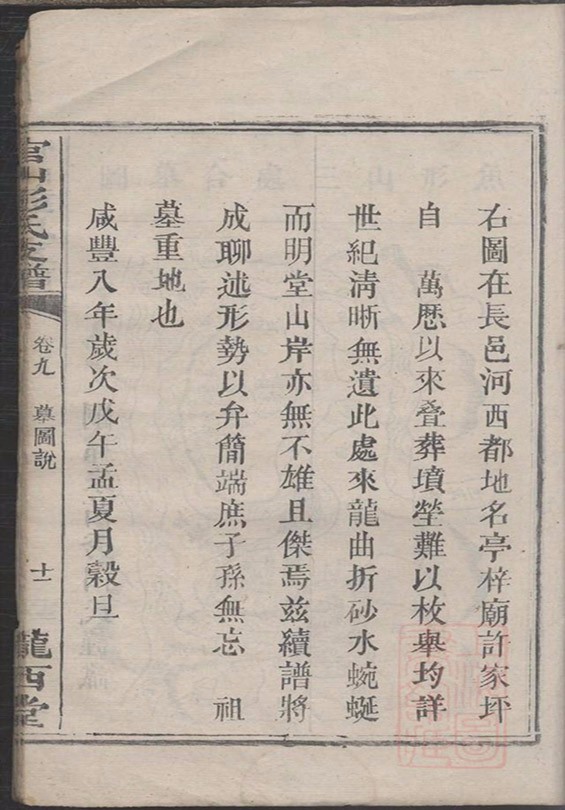 右圖在長邑河西都地名亭梓廟許家坪
自　萬厯以來叠葬墳塋難以枚舉均詳
世紀清晰無遺此處來龍曲折砂水蜿蜒
而明堂山岸亦無不雄且傑焉茲續譜將
成聊述形勢以弁簡端庶子孫無忘　祖
墓重地也
咸豐八年歲次戊午孟夏月穀旦
官山彭氏支譜
卷九　墓圖說
十二
隴西堂